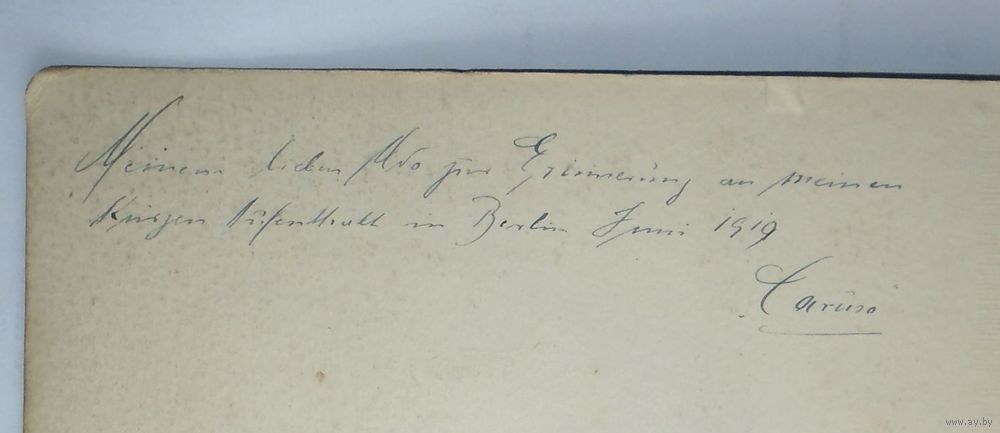 Meinem lieben Udo zur Erinnerung an meinen
kurzen Aufenthalt in Berlin Juni 1919
Caruso
www.ay.by